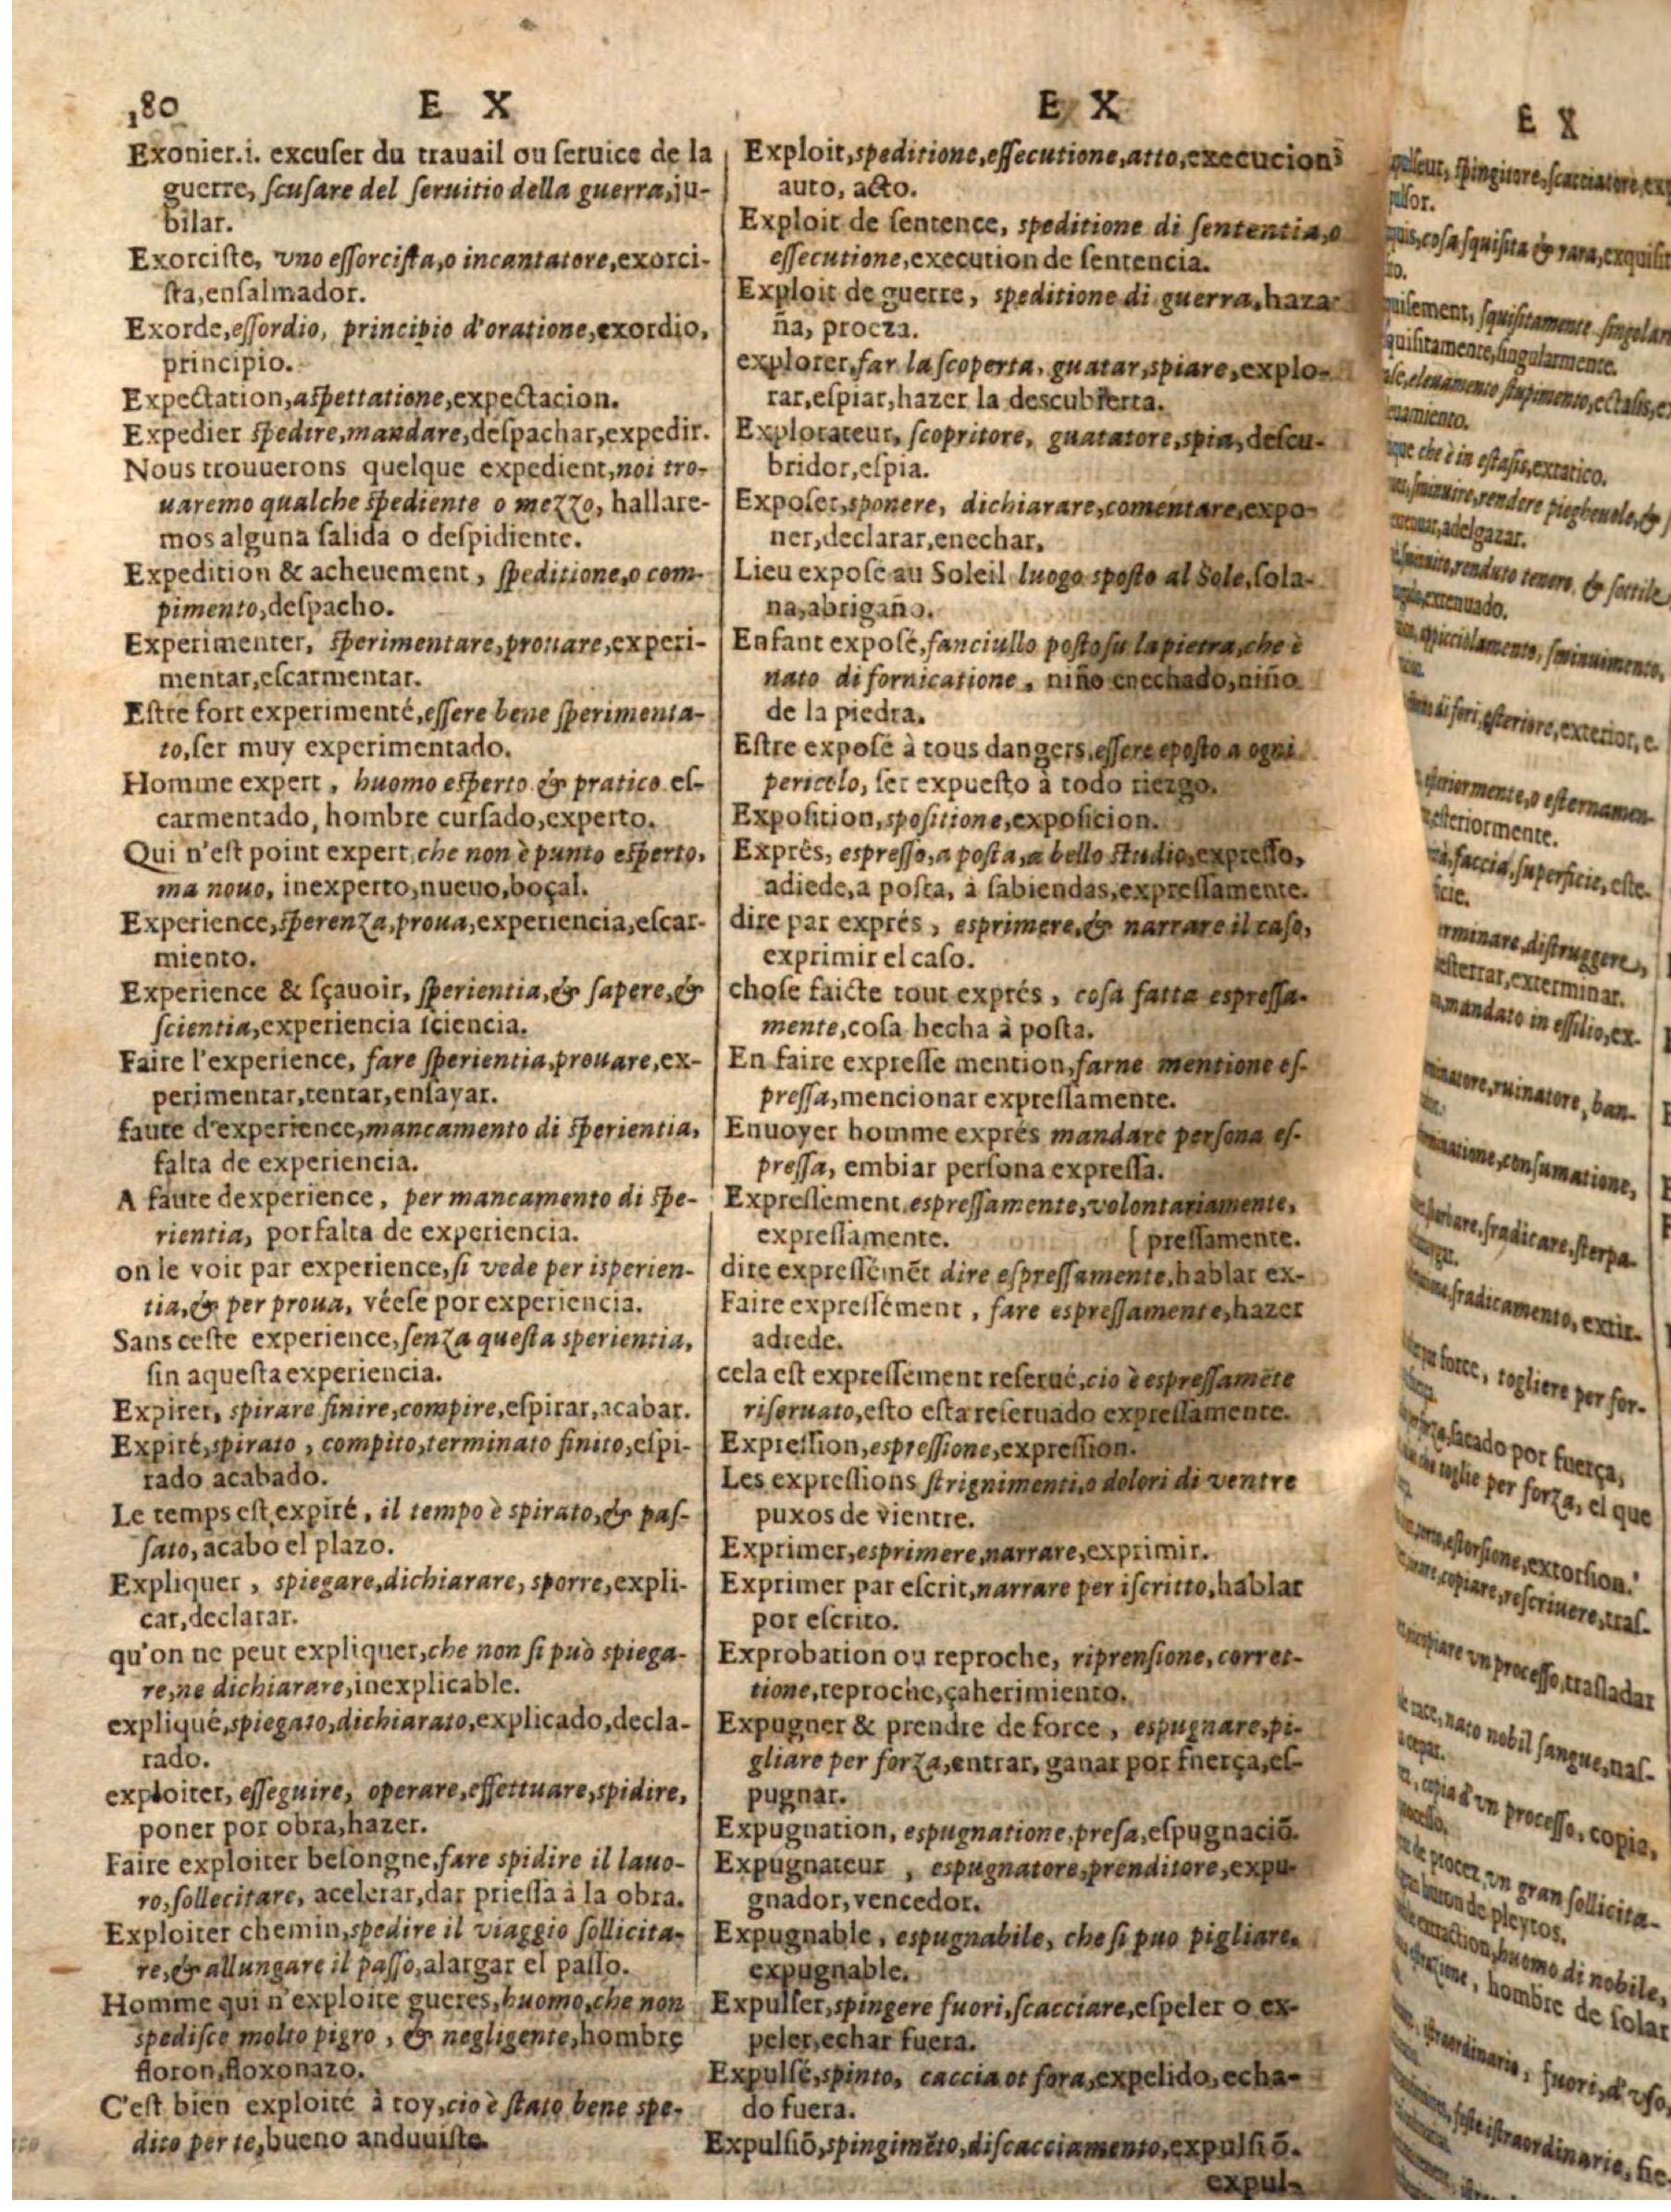 180 E X
Exonier.i. excuſer du trauail ou ſeruice de la
guerre, ſcuſare del ſeruitio della guerra, ju-
bilar.
Exorciſte, vno eſſorciſta, o incantatore, exorci-
ſta, enſalmador.
Exorde, eſſordio, principio d'oratione, exordio,
principio.
Expectation, aſpettatione, expectacion.
Expedier ſpedire, mandare, deſpachar, expedir.
Nous trouuerons quelque expedient, noi tro-
uaremo qualche ſpediente o mezzo, hallare-
mos alguna ſalida o deſpidiente.
Expedition & acheuement, ſpeditione, o com-
pimento, deſpacho.
Experimenter, ſperimentare, prouare, experi-
mentar, eſcarmentar.
Eſtre fort experimenté, eſſere bene ſperimenta-
to, ſer muy experimentado.
Homme expert, huomo eſperto & pratico eſ-
carmentado, hombre curſado, experto.
Qui n'eſt point expert, che non è punto eſperto,
ma nouo, inexperto, nueuo, boçal.
Experience, ſperenza, proua, experiencia, eſcar-
miento.
Experience & ſçauoir, ſperientia, & ſapere, &
ſcientia, experiencia ſciencia.
Faire l'experience, fare ſperientia, prouare, ex-
perimentar, tentar, enſayar.
faute d'experience, mancamento di ſperientia,
falta de experiencia.
A faute dexperience, per mancamento di ſpe-
rientia, por falta de experiencia.
on le voit par experience, ſi vede per iſperien-
tia, & per proua, véeſe por experiencia.
Sans ceſte experience, ſenza queſta sperientia,
ſin aqueſta experiencia.
Expirer, spirare finire, compire, eſpirar, acabar.
Expiré, spirato, compito, terminato finito, eſpi-
rado acabado.
Le temps eſt expiré, il tempo è spirato, & paſ-
ſato, acabo el plazo.
Expliquer, spiegare, dichiarare, sporre, expli-
car, declarar.
qu'on ne peut expliquer, che non ſi può spiega-
re, ne dichiarare, inexplicable.
expliqué, spiegato, dichiarato, explicado, decla-
rado.
exploiter, eſſeguire, operare, effettuare, spidire,
poner por obra, hazer.
Faire exploiter beſongne, fare spidire il lauo-
ro, ſollecitare, acelerar, dar prieſſa à la obra.
Exploiter chemin, spedire il viaggio ſollicita-
re, & allungare il paſſo, alargar el paſſo.
Homme qui n'exploite gueres, huomo, che non
spediſce molto pigro, & negligente, hombre
floron, floxonazo.
C'eſt bien exploité à toy, cio è ſtato bene spe-
dito per te, bueno anduuiſte.
E X
Exploit, speditione, eſſecutione, atto, execucion
auto, acto.
Exploit de ſentence, speditione di ſententia, o
eſſecutione, execution de ſentencia.
Exploit de guerre, speditione di guerra, haza-
ña, proeza.
explorer, far la ſcoperta, guatar, spiare, explo-
rar, eſpiar, hazer la deſcubierta.
Explorateur, ſcopritore, guatatore, spia, deſcu-
bridor, eſpia.
Expoſer, sponere, dichiarare, comentare, expo-
ner, declarar, enechar,
Lieu expoſé au Soleil luogo sposto al Sole, ſola-
na, abrigaño.
Enfant expoſé, fanciullo poſto ſu la pietra, che è
nato di fornicatione, niño enechado, niño
de la piedra.
Eſtre expoſé à tous dangers, eſſere epoſto a ogni
pericolo, ſer expueſto à todo riezgo.
Expoſition, spoſitione, expoſicion.
Exprés, espreſſo, a poſta, a bello ſtudio, expreſſo,
adiede, a poſta, à ſabiendas, expreſſamente.
dire par exprés, esprimere, & narrare il caſo,
exprimir el caſo.
choſe faicte tout exprés, coſa fatta espreſſa-
mente, coſa hecha à poſta.
En faire expreſſe mention, farne mentione eſ-
preſſa, mencionar expreſſamente.
Enuoyer homme exprés mandare perſona eſ-
preſſa, embiar perſona expreſſa.
Expreſſement, espreſſamente, volontariamente,
expreſſamente. [preſſamente.
dire expreſſemẽt dire eſpreſſamente, hablar ex-
Faire expreſſément, fare espreſſamente, hazer
adrede.
cela eſt expreſſement reſerué, cio è espreſſamẽte
riſeruato, eſto eſta reſeruado expreſſamente.
Expreſſion, espreſſione, expreſſion.
Les expreſſions ſtrignimenti, o dolori di ventre
puxos de vientre.
Exprimer, esprimere, narrare, exprimir.
Exprimer par eſcrit, narrare per iſcritto, hablar
por eſcrito.
Exprobation ou reproche, riprenſione, corret-
tione, reproche, çaherimiento.
Expugner & prendre de force, espugnare, pi-
gliare per forza, entrar, ganar por fnerça, eſ-
pugnar.
Expugnation, espugnatione, preſa, eſpugnaciõ.
Expugnateur, espugnatore, prenditore, expu-
gnador, vencedor.
Expugnable, espugnabile, che ſi puo pigliare,
expugnable.
Expulſer, spingere fuori, ſcacciare, eſpeler o ex-
peler, echar fuera.
Expulſé, spinto, caccia ot fora, expelido, echa-
do fuera.
Expulſiõ, spingimẽto, diſcacciamento, expulſiõ.
expul-
E X
ſpingitore, ſcacciatore, ex
coſa ſquiſita & rara, exquiſit
ſquiſitamente ſingolar
quiſitamente, ſingularmente.
che è in eſtaſis, extatico.
rendere piegheuole, &
adelgazar.
renduto tenero, & ſottile
extenuado.
eſteriore, exterior, e-
o eſternamen-
eſteriormente.
faccia, ſuperficie, eſte-
rminare, diſtruggere,
eſterrar, exterminar.
mandato in eſſilio, ex-
ruinatore, ban-
conſumatione,
ſradicare, ſterpa-
ſradicamento, extir-
force, togliere per for-
ſacado por fuerça,
toglie per forza, el que
eſtorſione, extorſion.
copiare, reſcriuere, traſ-
vn proceſſo, traſladar
race, nato nobil ſangue, naſ-
copia d'vn proceſſo, copia,
de procez, vn gran ſollicita-
de pleytos.
extraction, huomo di nobile,
hombre de ſolar
fuori, d'vſo,